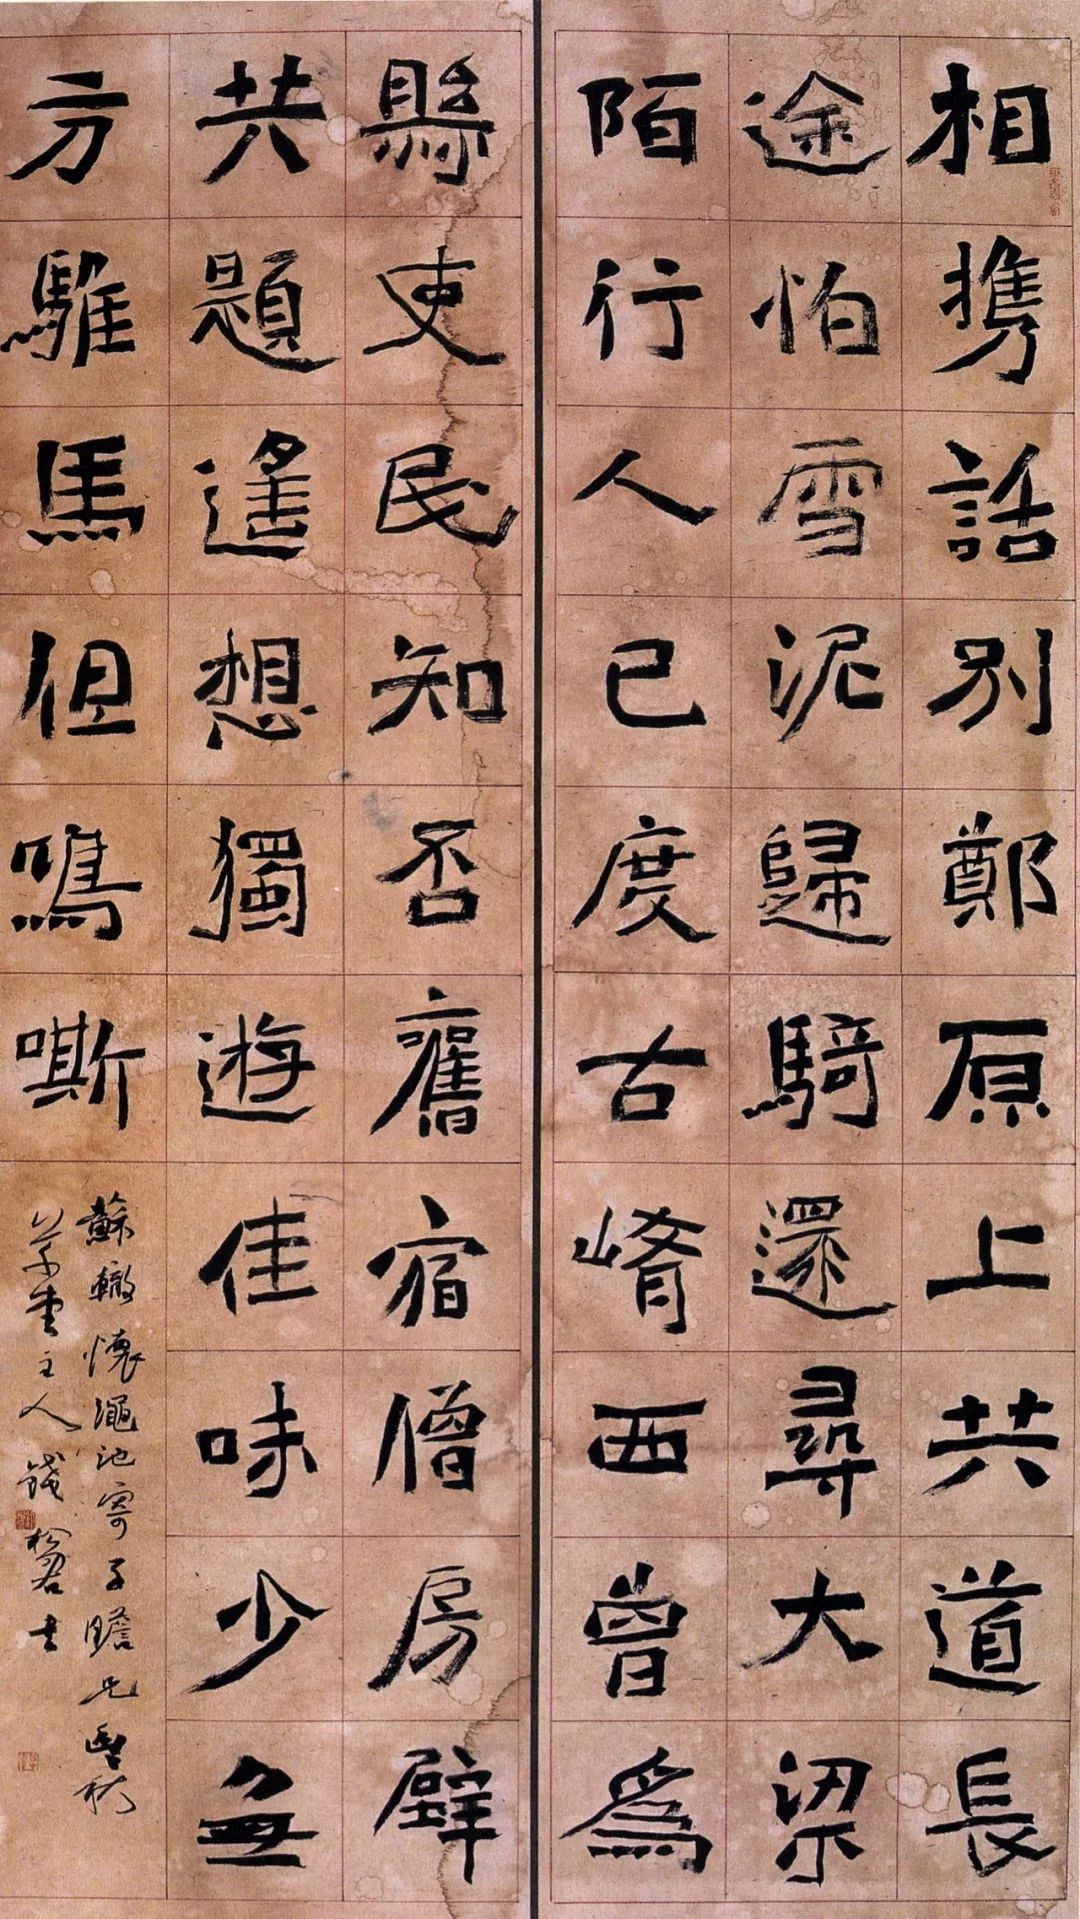 相携話別鄭原上共道長
途怕雪泥歸騎還尋大梁
陌行人已度古崤西曾爲
縣吏民知否舊宿僧房壁
共題遙想獨遊佳味少無
方騅馬但鳴嘶
蘇轍懷澠池寄子瞻兄
草堂主人錢